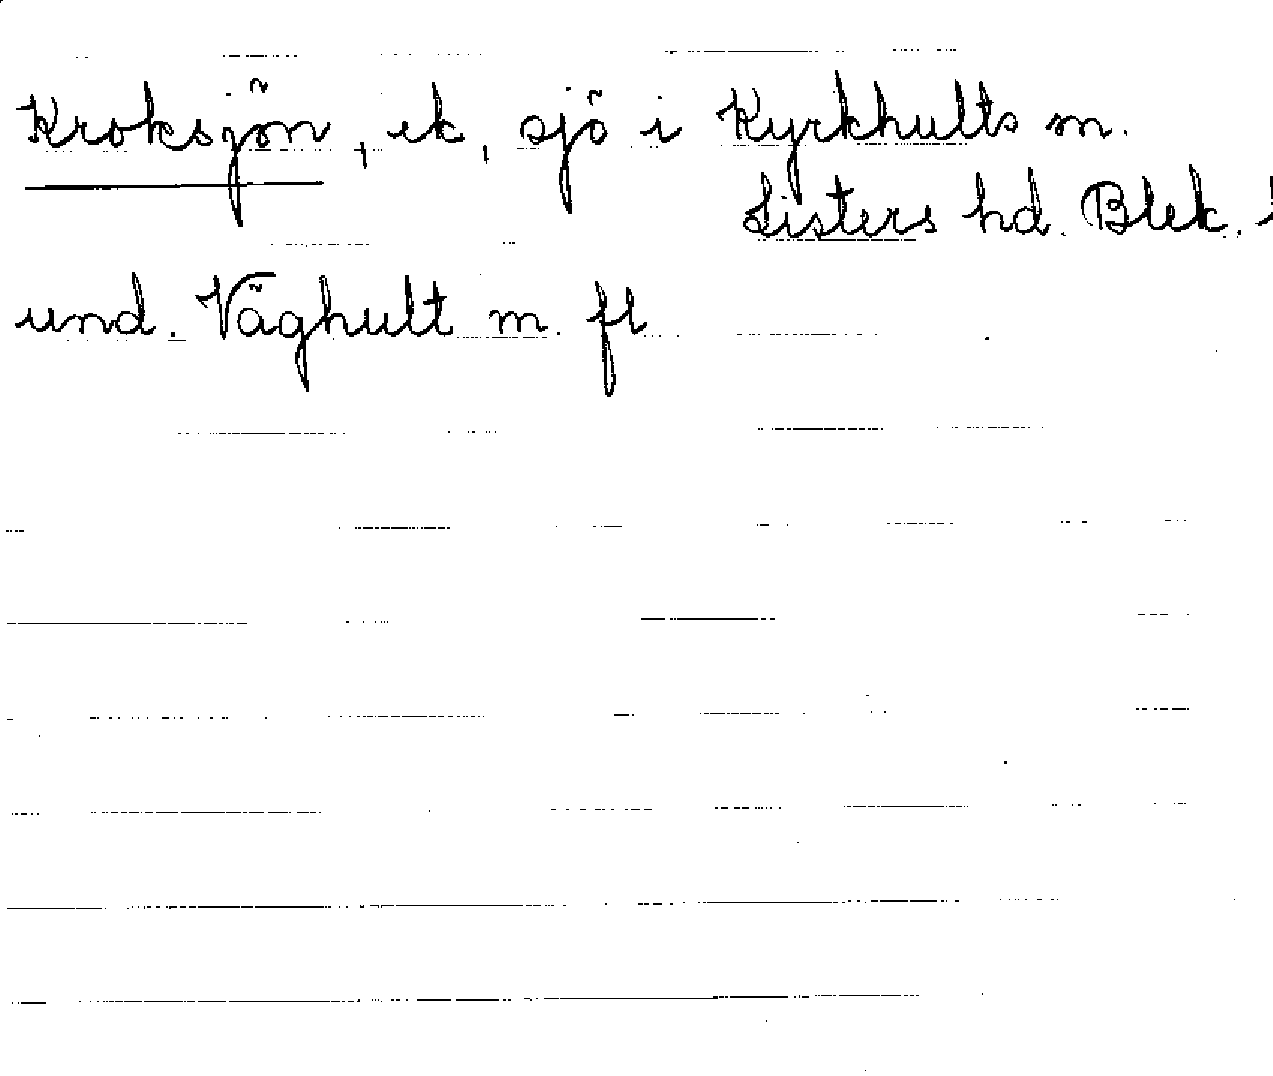 Kroksjön, ek, sjö i Kyrkhults m.
Listers hd. Blek.
und. Väghult m. fl